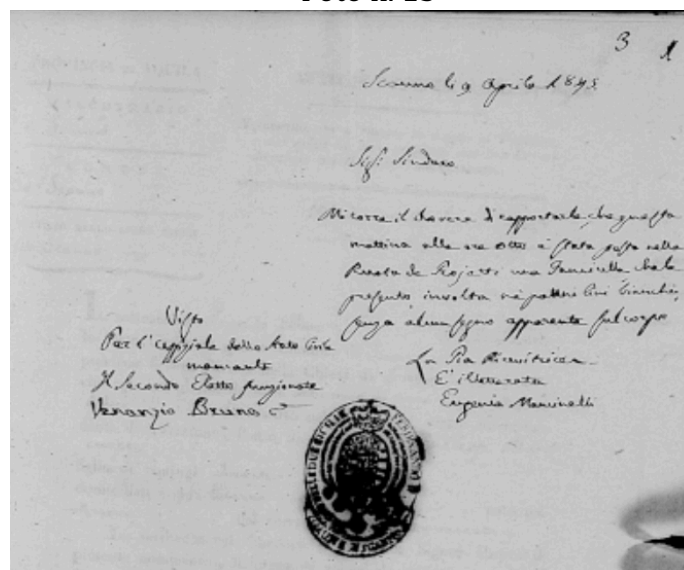 Foto n. 13
3 1
Scanno li 9 Aprile 1845.
Sig.r Sindaco
Mi corre il dovere di rapportarle, che questa
mattina alle ore otto è stata posta nella
Ruota de Projetti una Fanciulla che le
presento, involta ne' pannolini bianchi,
senza alcun segno apparente sul corpo
La Pia Ricevitrice
È illetterata
Eugenia Mancinelli
Visto
Per l'Uffiziale dello Stato Civile
mancante
Il Secondo Eletto funzionante
Venanzio Bruno